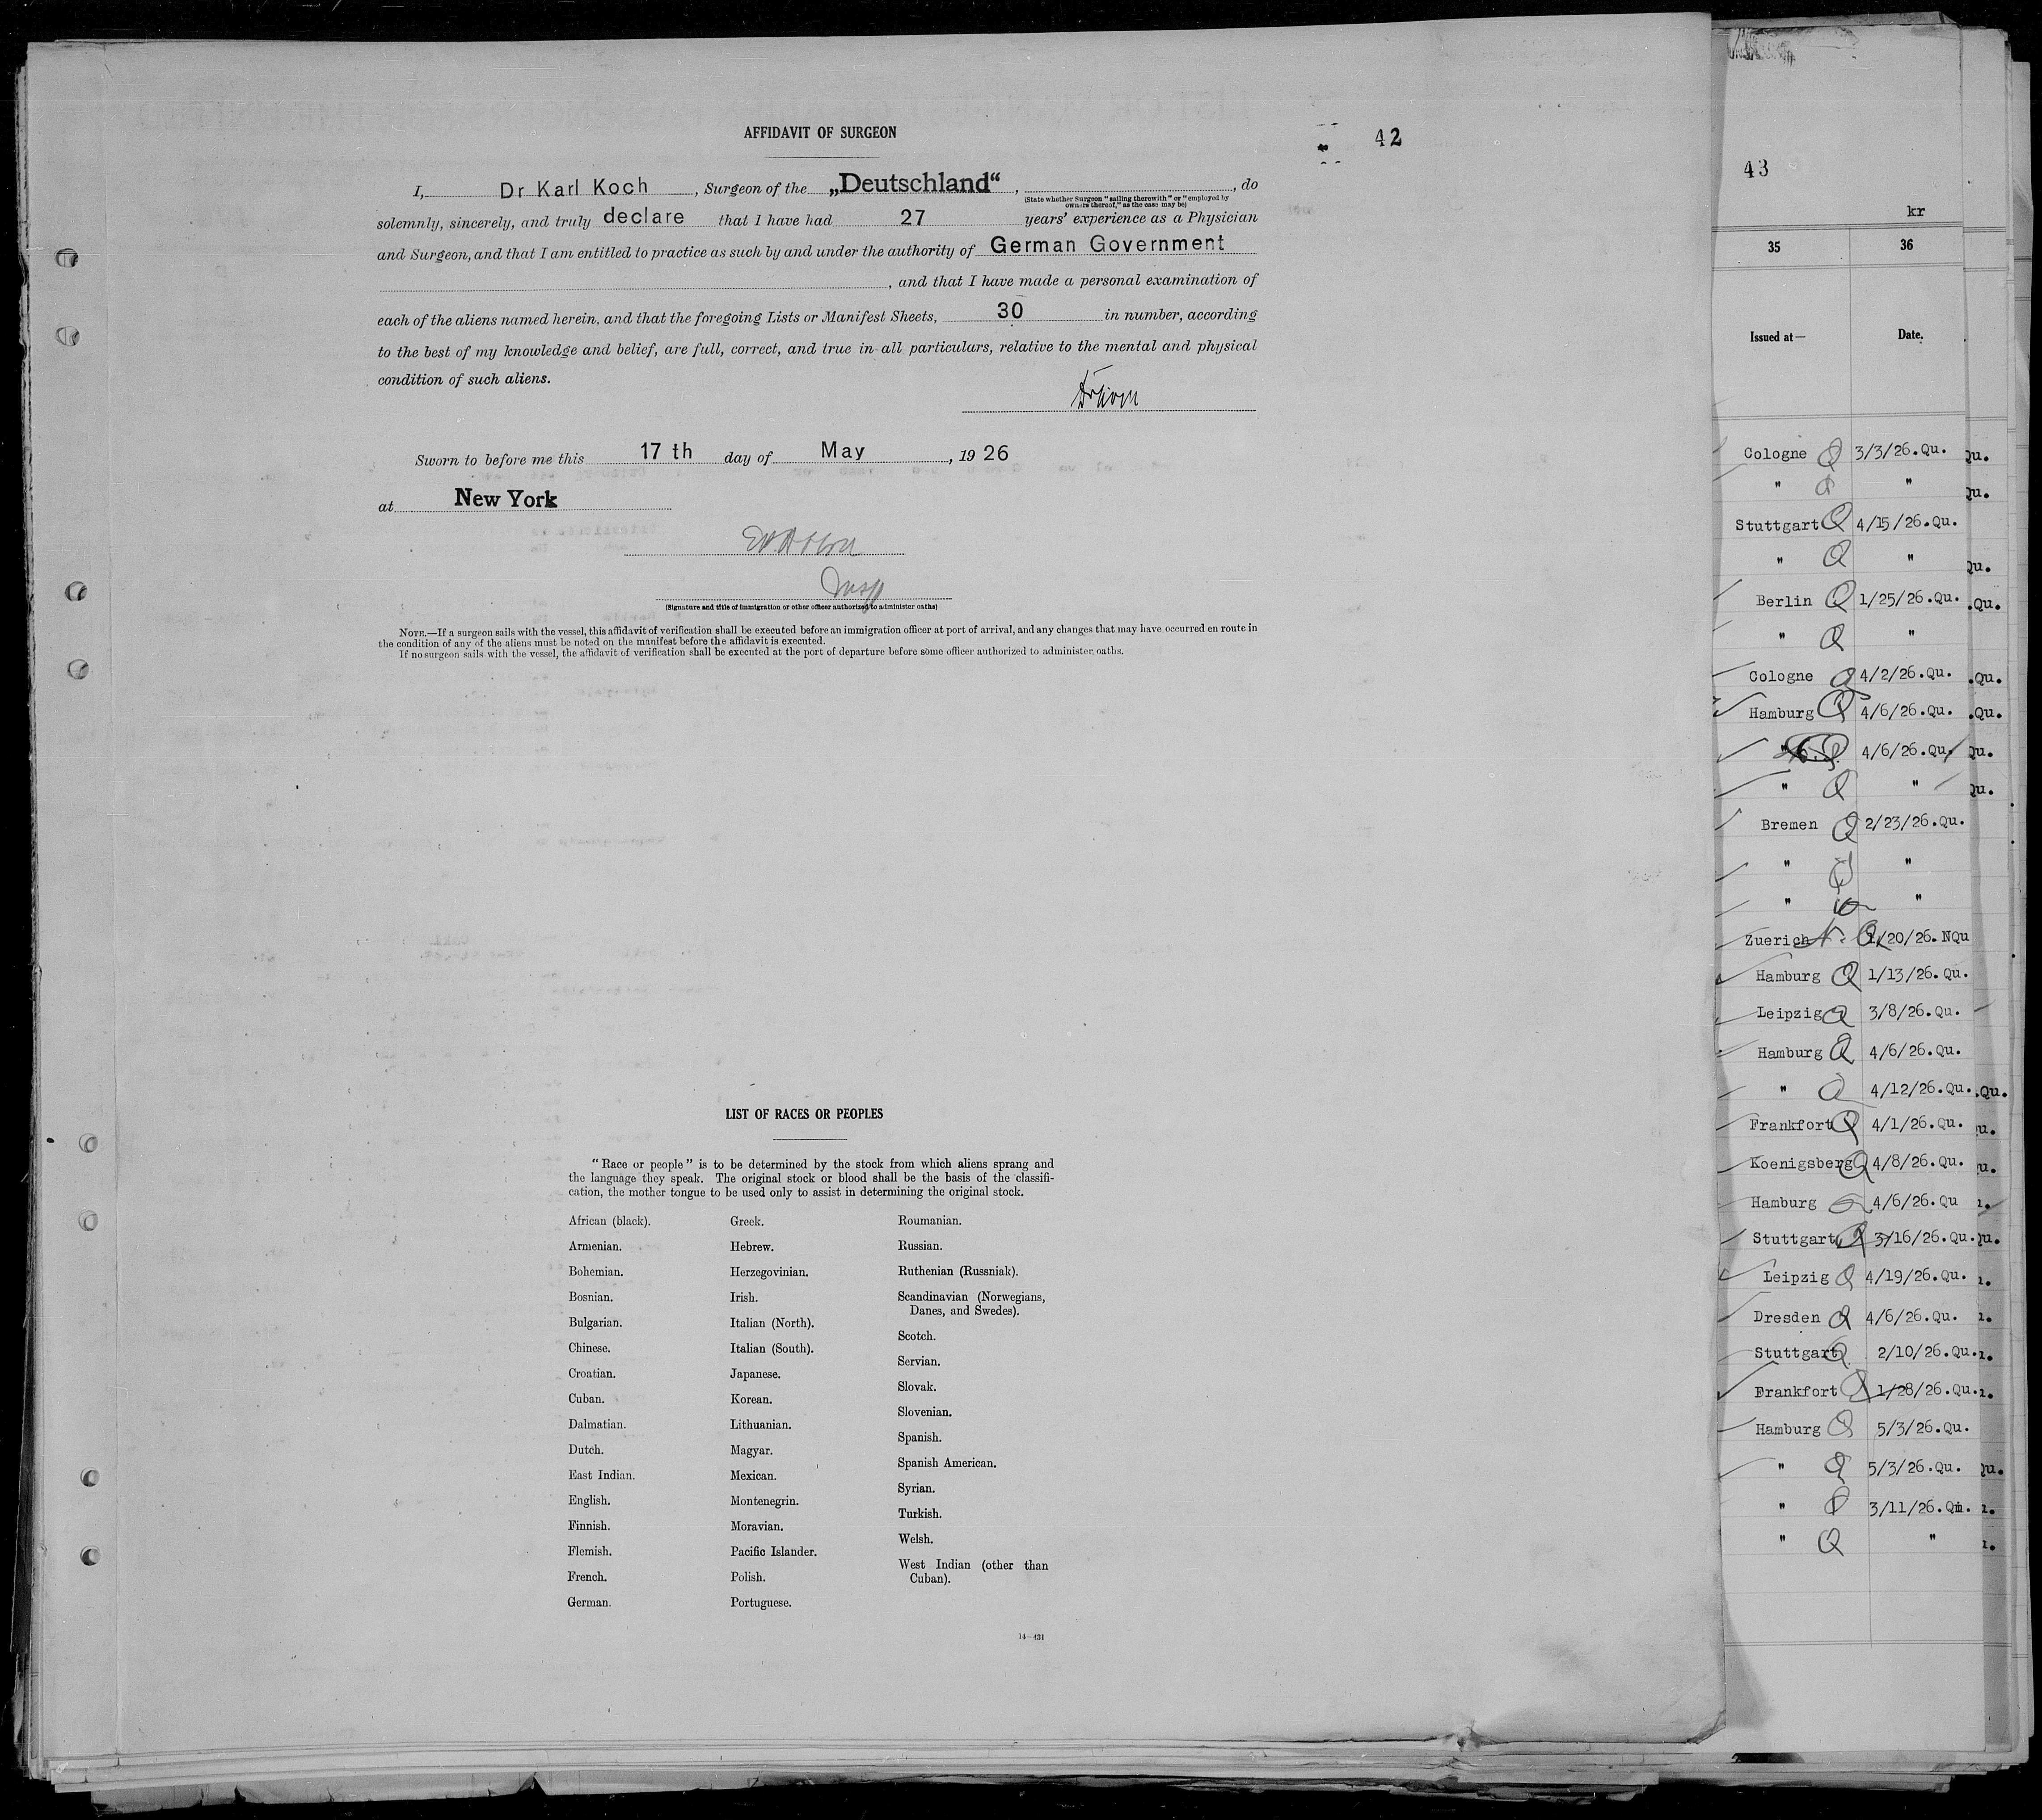 AFFIDAVIT OF SURGEON
42
I, Dr Karl Koch, Surgeon of the „Deutschland“, , do
(State whether Surgeon "sailing therewith" or "employed by
owners thereof," as the case may be)
solemnly, sincerely, and truly declare that I have had 27 years' experience as a Physician
and Surgeon, and that I am entitled to practice as such by and under the authority of German Government
, and that I have made a personal examination of
each of the aliens named herein, and that the foregoing Lists or Manifest Sheets, 30 in number, according
to the best of my knowledge and belief, are full, correct, and true in all particulars, relative to the mental and physical
condition of such aliens.
Sworn to before me this 17 th day of May, 19 26
at New York
Insp
(Signature and title of immigration or other officer authorized to administer oaths)
NOTE.—If a surgeon sails with the vessel, this affidavit of verification shall be executed before an immigration officer at port of arrival, and any changes that may have occurred en route in
the condition of any of the aliens must be noted on the manifest before the affidavit is executed.
If no surgeon sails with the vessel, the affidavit of verification shall be executed at the port of departure before some officer authorized to administer oaths.
LIST OF RACES OR PEOPLES
"Race or people" is to be determined by the stock from which aliens sprang and
the language they speak. The original stock or blood shall be the basis of the classifi-
cation, the mother tongue to be used only to assist in determining the original stock.
African (black).
Armenian.
Bohemian.
Bosnian.
Bulgarian.
Chinese.
Croatian.
Cuban.
Dalmatian.
Dutch.
East Indian.
English.
Finnish.
Flemish.
French.
German.
Greek.
Hebrew.
Herzegovinian.
Irish.
Italian (North).
Italian (South).
Japanese.
Korean.
Lithuanian.
Magyar.
Mexican.
Montenegrin.
Moravian.
Pacific Islander.
Polish.
Portuguese.
Roumanian.
Russian.
Ruthenian (Russniak).
Scandinavian (Norwegians,
Danes, and Swedes).
Scotch.
Servian.
Slovak.
Slovenian.
Spanish.
Spanish American.
Syrian.
Turkish.
Welsh.
West Indian (other than
Cuban).
14—431
43
kr
35 36
Issued at— Date.
Cologne Q 3/3/26.Qu. Qu.
" Q " Qu.
Stuttgart Q 4/15/26.Qu.
" Q " Qu.
Berlin Q 1/25/26.Qu. .Qu.
" Q "
Cologne Q 4/2/26.Qu. .Qu.
Hamburg Q 4/6/26.Qu. .Qu.
" Q 4/6/26.Qu. Qu.
" Q " Qu.
Bremen Q 2/23/26.Qu.
" Q "
" "
Zuerich N.Q. 1/20/26.NQu
Hamburg Q 1/13/26.Qu.
Leipzig Q 3/8/26.Qu.
Hamburg Q 4/6/26.Qu.
" Q 4/12/26.Qu. .Qu.
Frankfort Q 4/1/26.Qu. u.
Koenigsberg Q 4/8/26.Qu. u.
Hamburg Q 4/6/26.Qu
Stuttgart Q 3/16/26.Qu. Qu.
Leipzig Q 4/19/26.Qu.
Dresden Q 4/6/26.Qu.
Stuttgart Q 2/10/26.Qu.
Frankfort Q 1/28/26.Qu.
Hamburg Q 5/3/26.Qu.
" Q 5/3/26.Qu. Qu.
" Q 3/11/26.Qu.
" Q "